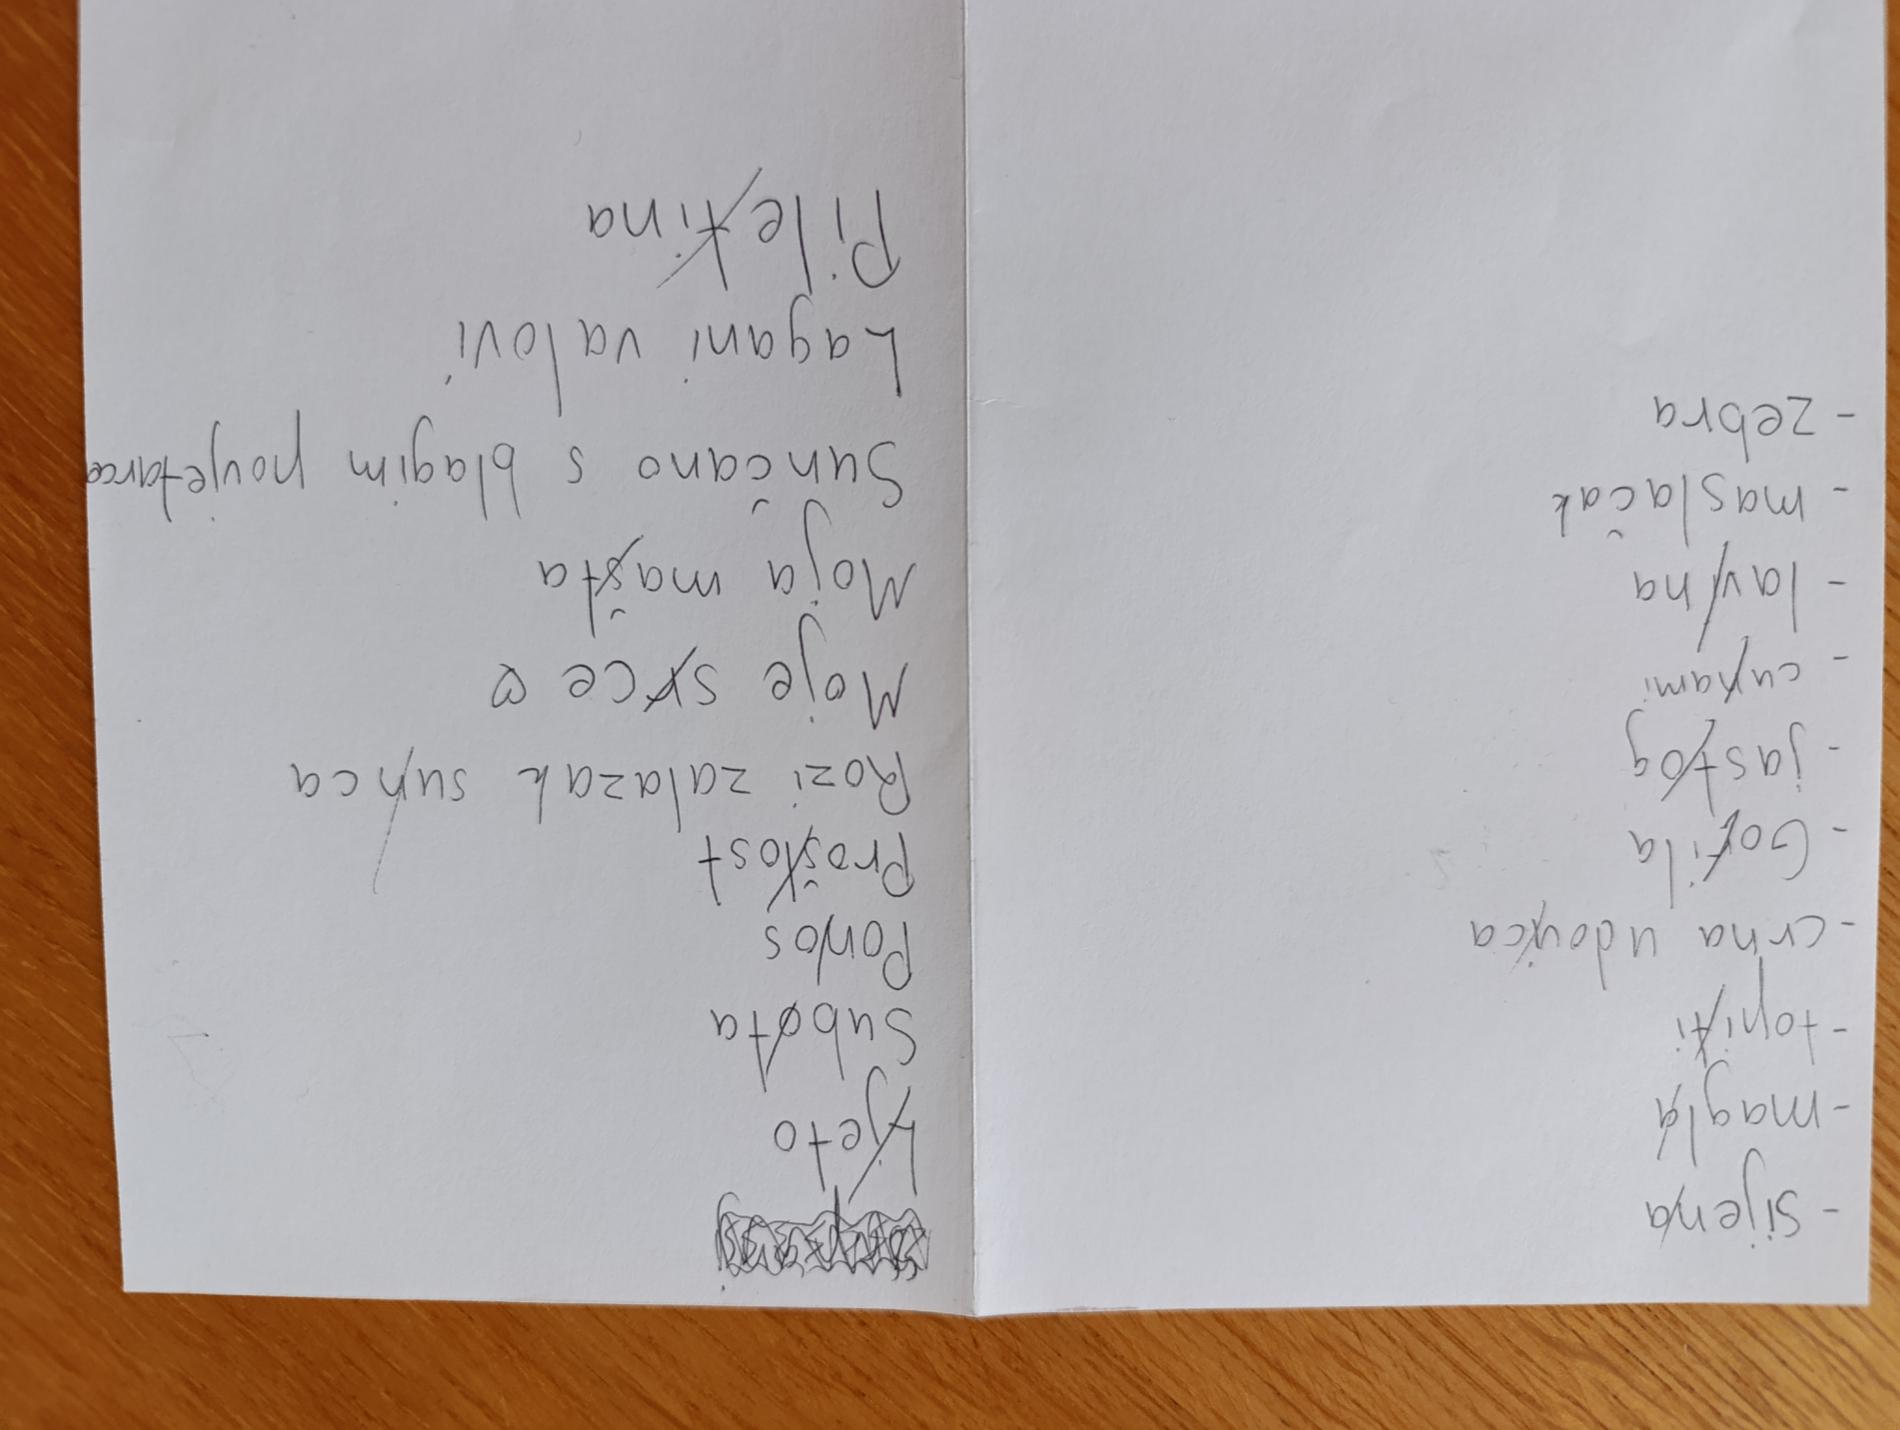 - sijena
- magla
- topiti
- crna udovica
- Gorila
- jastog
- cunami
- lavina
- maslačak
- zebra
Ljeto
Subota
Ponos
Prošlost
Rozi zalazak sunca
Moje srce ♡
Moja mašta
Sunčano s blagim povjetarce
Lagani valovi
Piletina